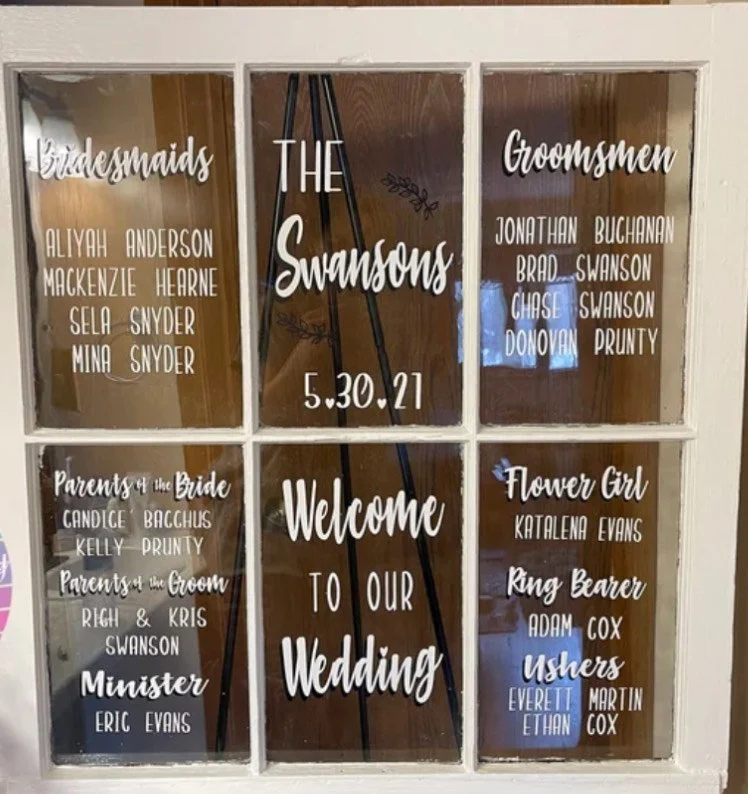 Bridesmaids
ALIYAH ANDERSON
MACKENZIE HEARNE
SELA SNYDER
MINA SNYDER
THE
Swansons
5.30.21
Groomsmen
JONATHAN BUCHANAN
BRAD SWANSON
CHASE SWANSON
DONOVAN PRUNTY
Parents of the Bride
CANDICE BACCHUS
KELLY PRUNTY
Parents of the Groom
RICH & KRIS
SWANSON
Minister
ERIC EVANS
Welcome
TO OUR
Wedding
Flower Girl
KATALENA EVANS
Ring Bearer
ADAM COX
Ushers
EVERETT MARTIN
ETHAN COX